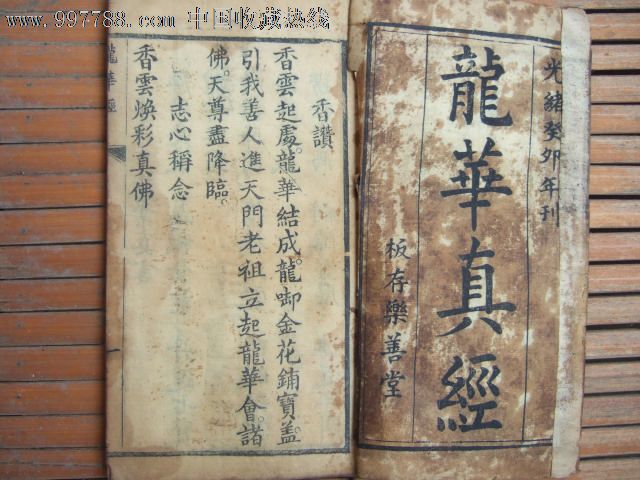 www.997788.com 中国收藏热线
光緒癸卯年刊
龍華真經
板存樂善堂
香讚
香雲起處。龍華結成。龍啣金花鋪寶盖。
引我善人進天門老祖立起龍華會。諸
佛。天尊盡降臨。
志心稱念
香雲煥彩真佛
龍華經
一